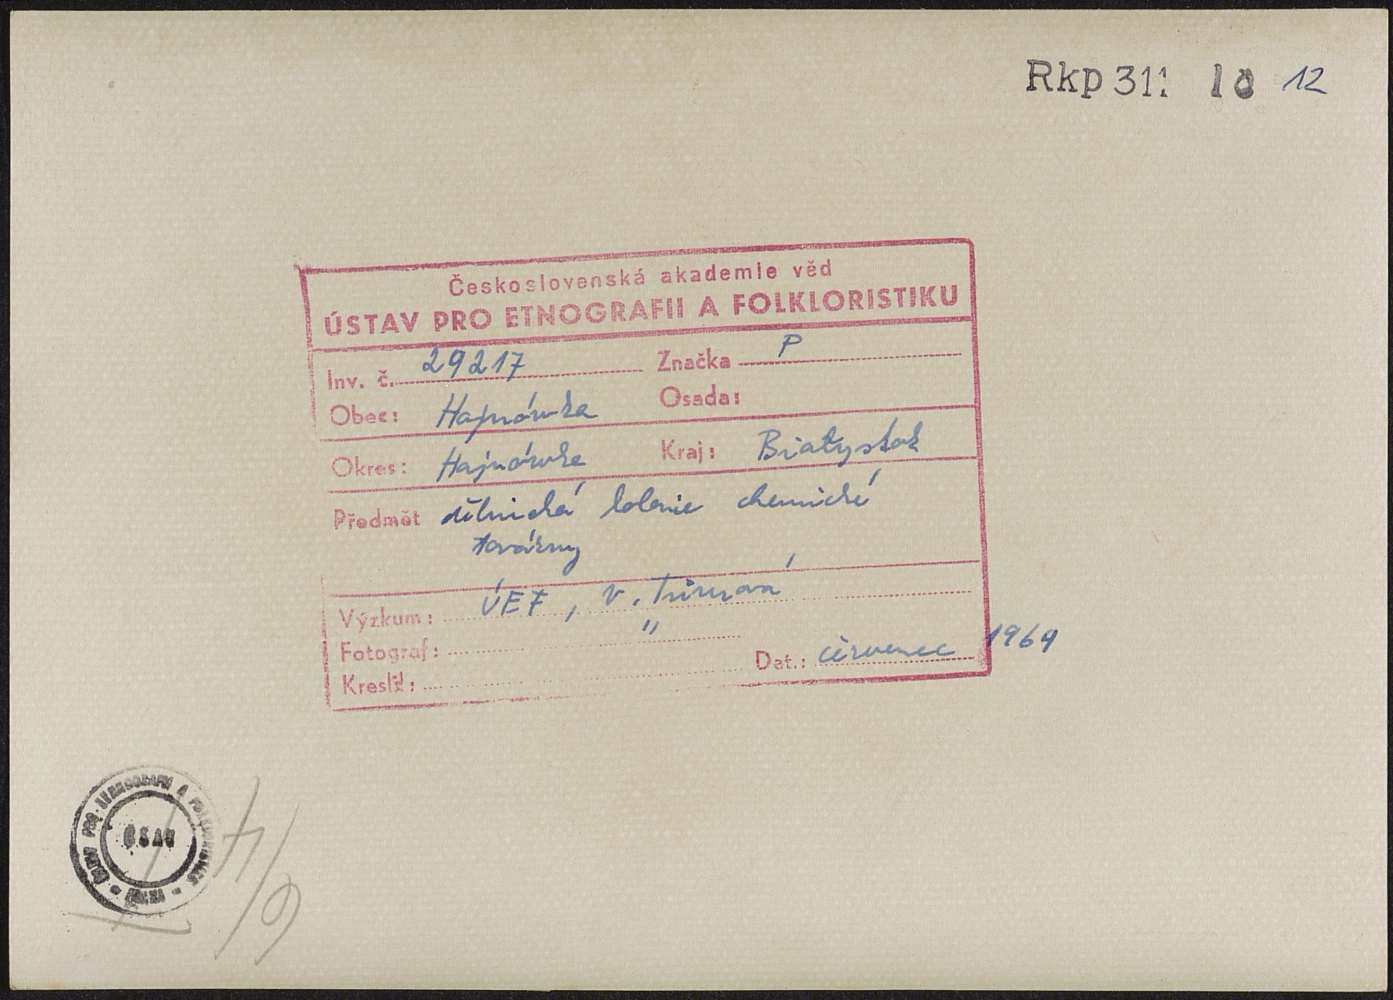 Rkp 311 10 12
Československá akademie věd
ÚSTAV PRO ETNOGRAFII A FOLKLORISTIKU
Inv. č. 29217 Značka P
Obec: Hajnówka Osada:
Okres: Hajnówka Kraj: Białystok
Předmět dělnická kolonie chemické
továrny
Výzkum: ÚEF, V.
Fotograf: "
Kreslil: Dat.: červenec 1964
ÚSTAV PRO ETNOGRAFII A FOLKLORISTIKU
ČSAV